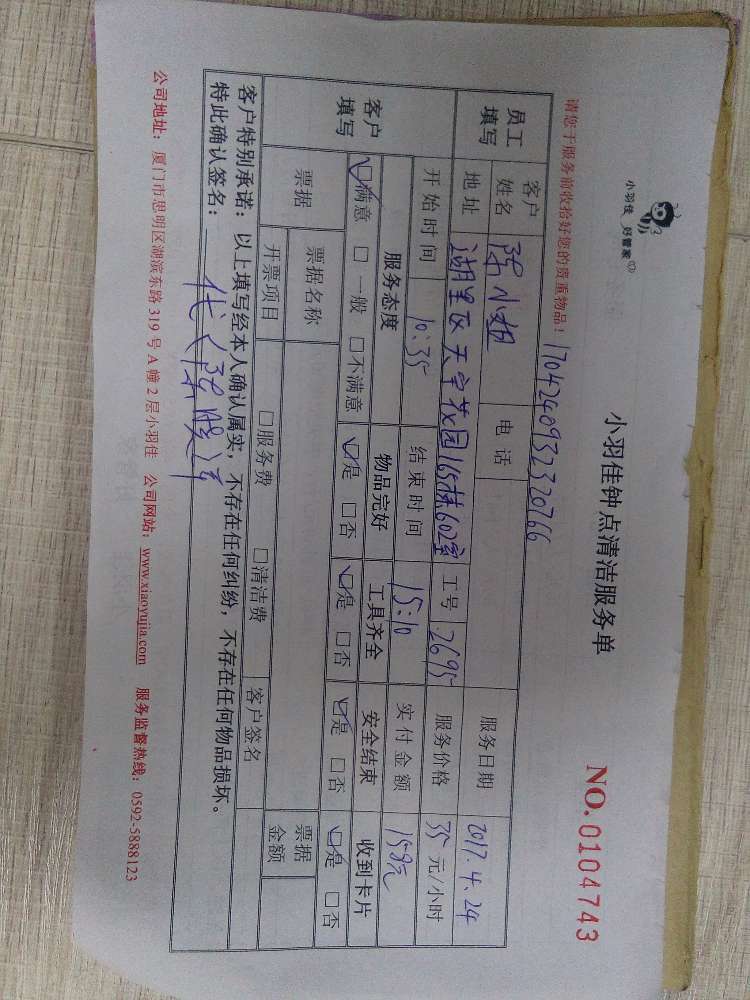 小羽佳 好管家
小羽佳钟点清洁服务单
NO.0104743
请您于服务前收拾好您的贵重物品！170424093232076​6
员工填写 客户姓名 陈小姐 电话 服务日期 2017.4.24
地址 湖里区天宇花园165栋602室 工号 2695 服务价格 35元/小时
客户填写 开始时间 10:35 结束时间 15:10 实付金额 159元
服务态度 物品完好 工具齐全 安全结束 收到卡片
☑满意 □一般 □不满意 ☑是 □否 ☑是 □否 ☑是 □否 ☑是 □否
票据 票据名称 票据金额
开票项目 □服务费 □清洁费 客户签名
客户特别承诺：以上填写经本人确认属实，不存在任何纠纷，不存在任何物品损坏。
特此确认签名：代
公司地址：厦门市思明区湖滨东路319号A幢2层小羽佳 公司网站：www.xiaoyujia.com 服务监督热线：0592-5888123